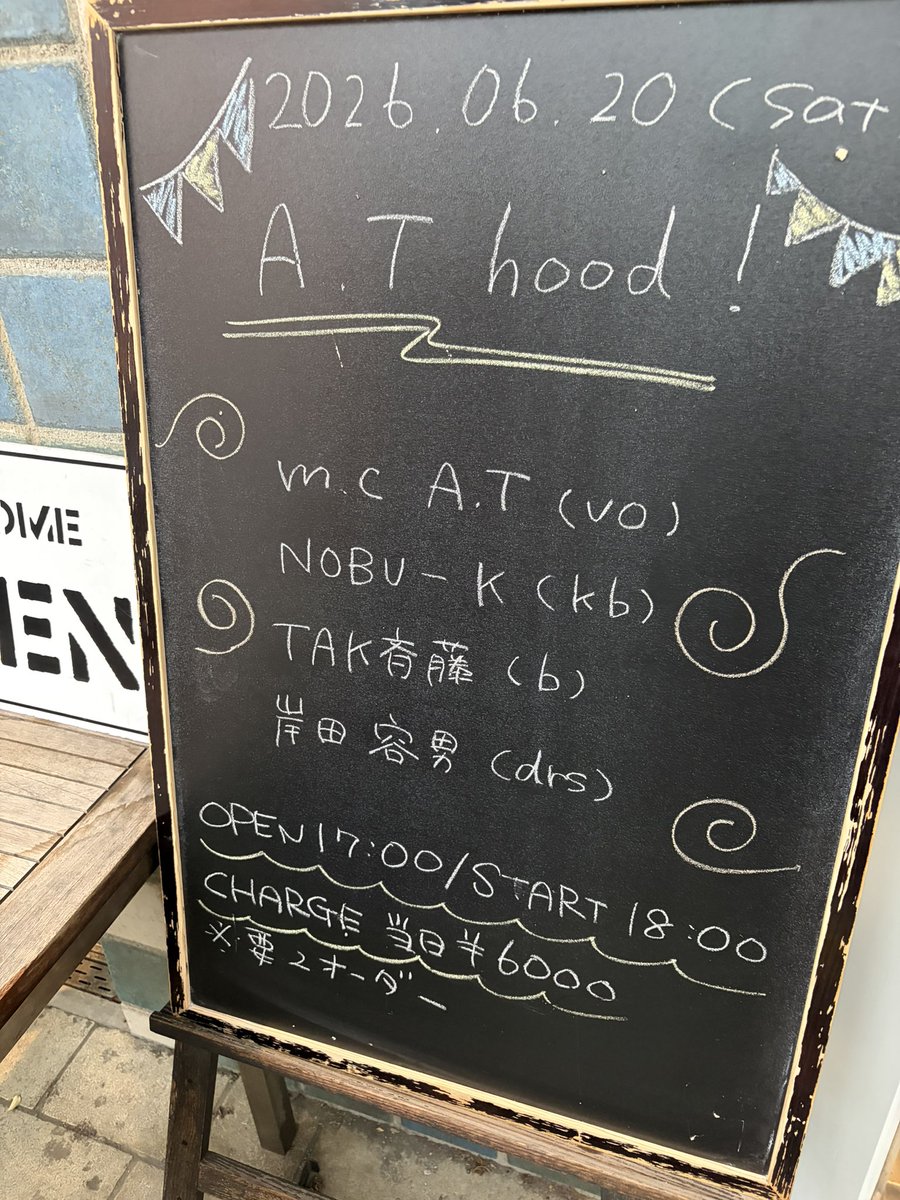 2026.06.20 (Sat
A.T hood!
m.c A.T (vo)
NOBU-K (kb)
TAK斉藤 (b)
岸田 容男 (drs)
OPEN 17:00/START 18:00
CHARGE 当日¥6000
※要2オーダー
OME
EN